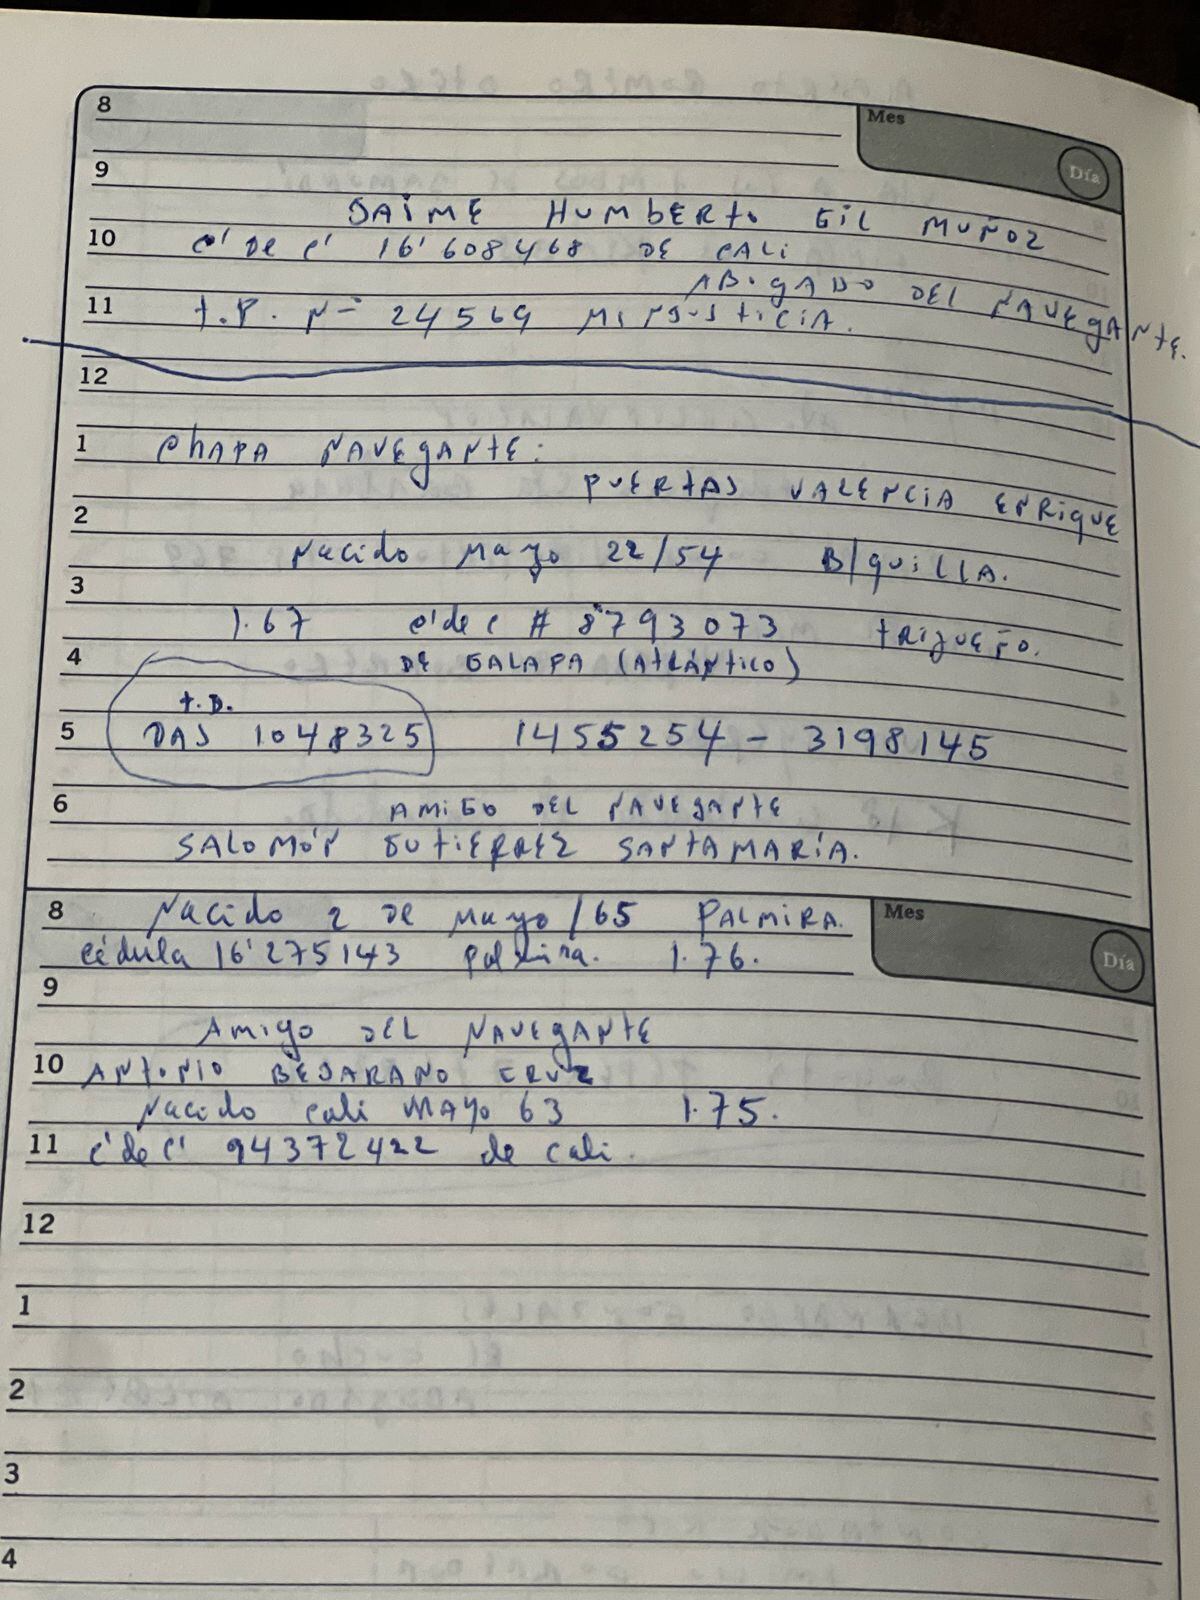 8
Mes
Día
9
JAIME HUMBERTO GIL MUÑOZ
10 c' de c' 16'608468 DE CALI
ABOGADO DEL NAVEGANTE.
11 t.P. N- 24569 MINJUSTICIA.
12
1 ChAPA NAVEGANTE:
PUERTAS VALENCIA ENRIQUE
2
Nacido Mayo 22/54 B/QUILLA.
3
1.67 c'de c # 8'793073 TRIGUEÑO.
4 DE GALAPA (AtLÁNTICO)
t.D.
5 DAS 1048325 1455254 - 3198145
6 AMIGO DEL NAVEGANTE
SALOMÓN GUTIERREZ SANTAMARÍA.
8 Nacido 2 DE Mayo/65 PALMIRA.
Mes
Día
cédula 16'275143 palmira. 1.76.
9
AMIgo DEL NAVEGANTE
10 ANTONIO BEJARANO CRUZ
Nacido cali MAYO 63 1.75.
11 c'de c' 94372422 de cali.
12
1
2
3
4